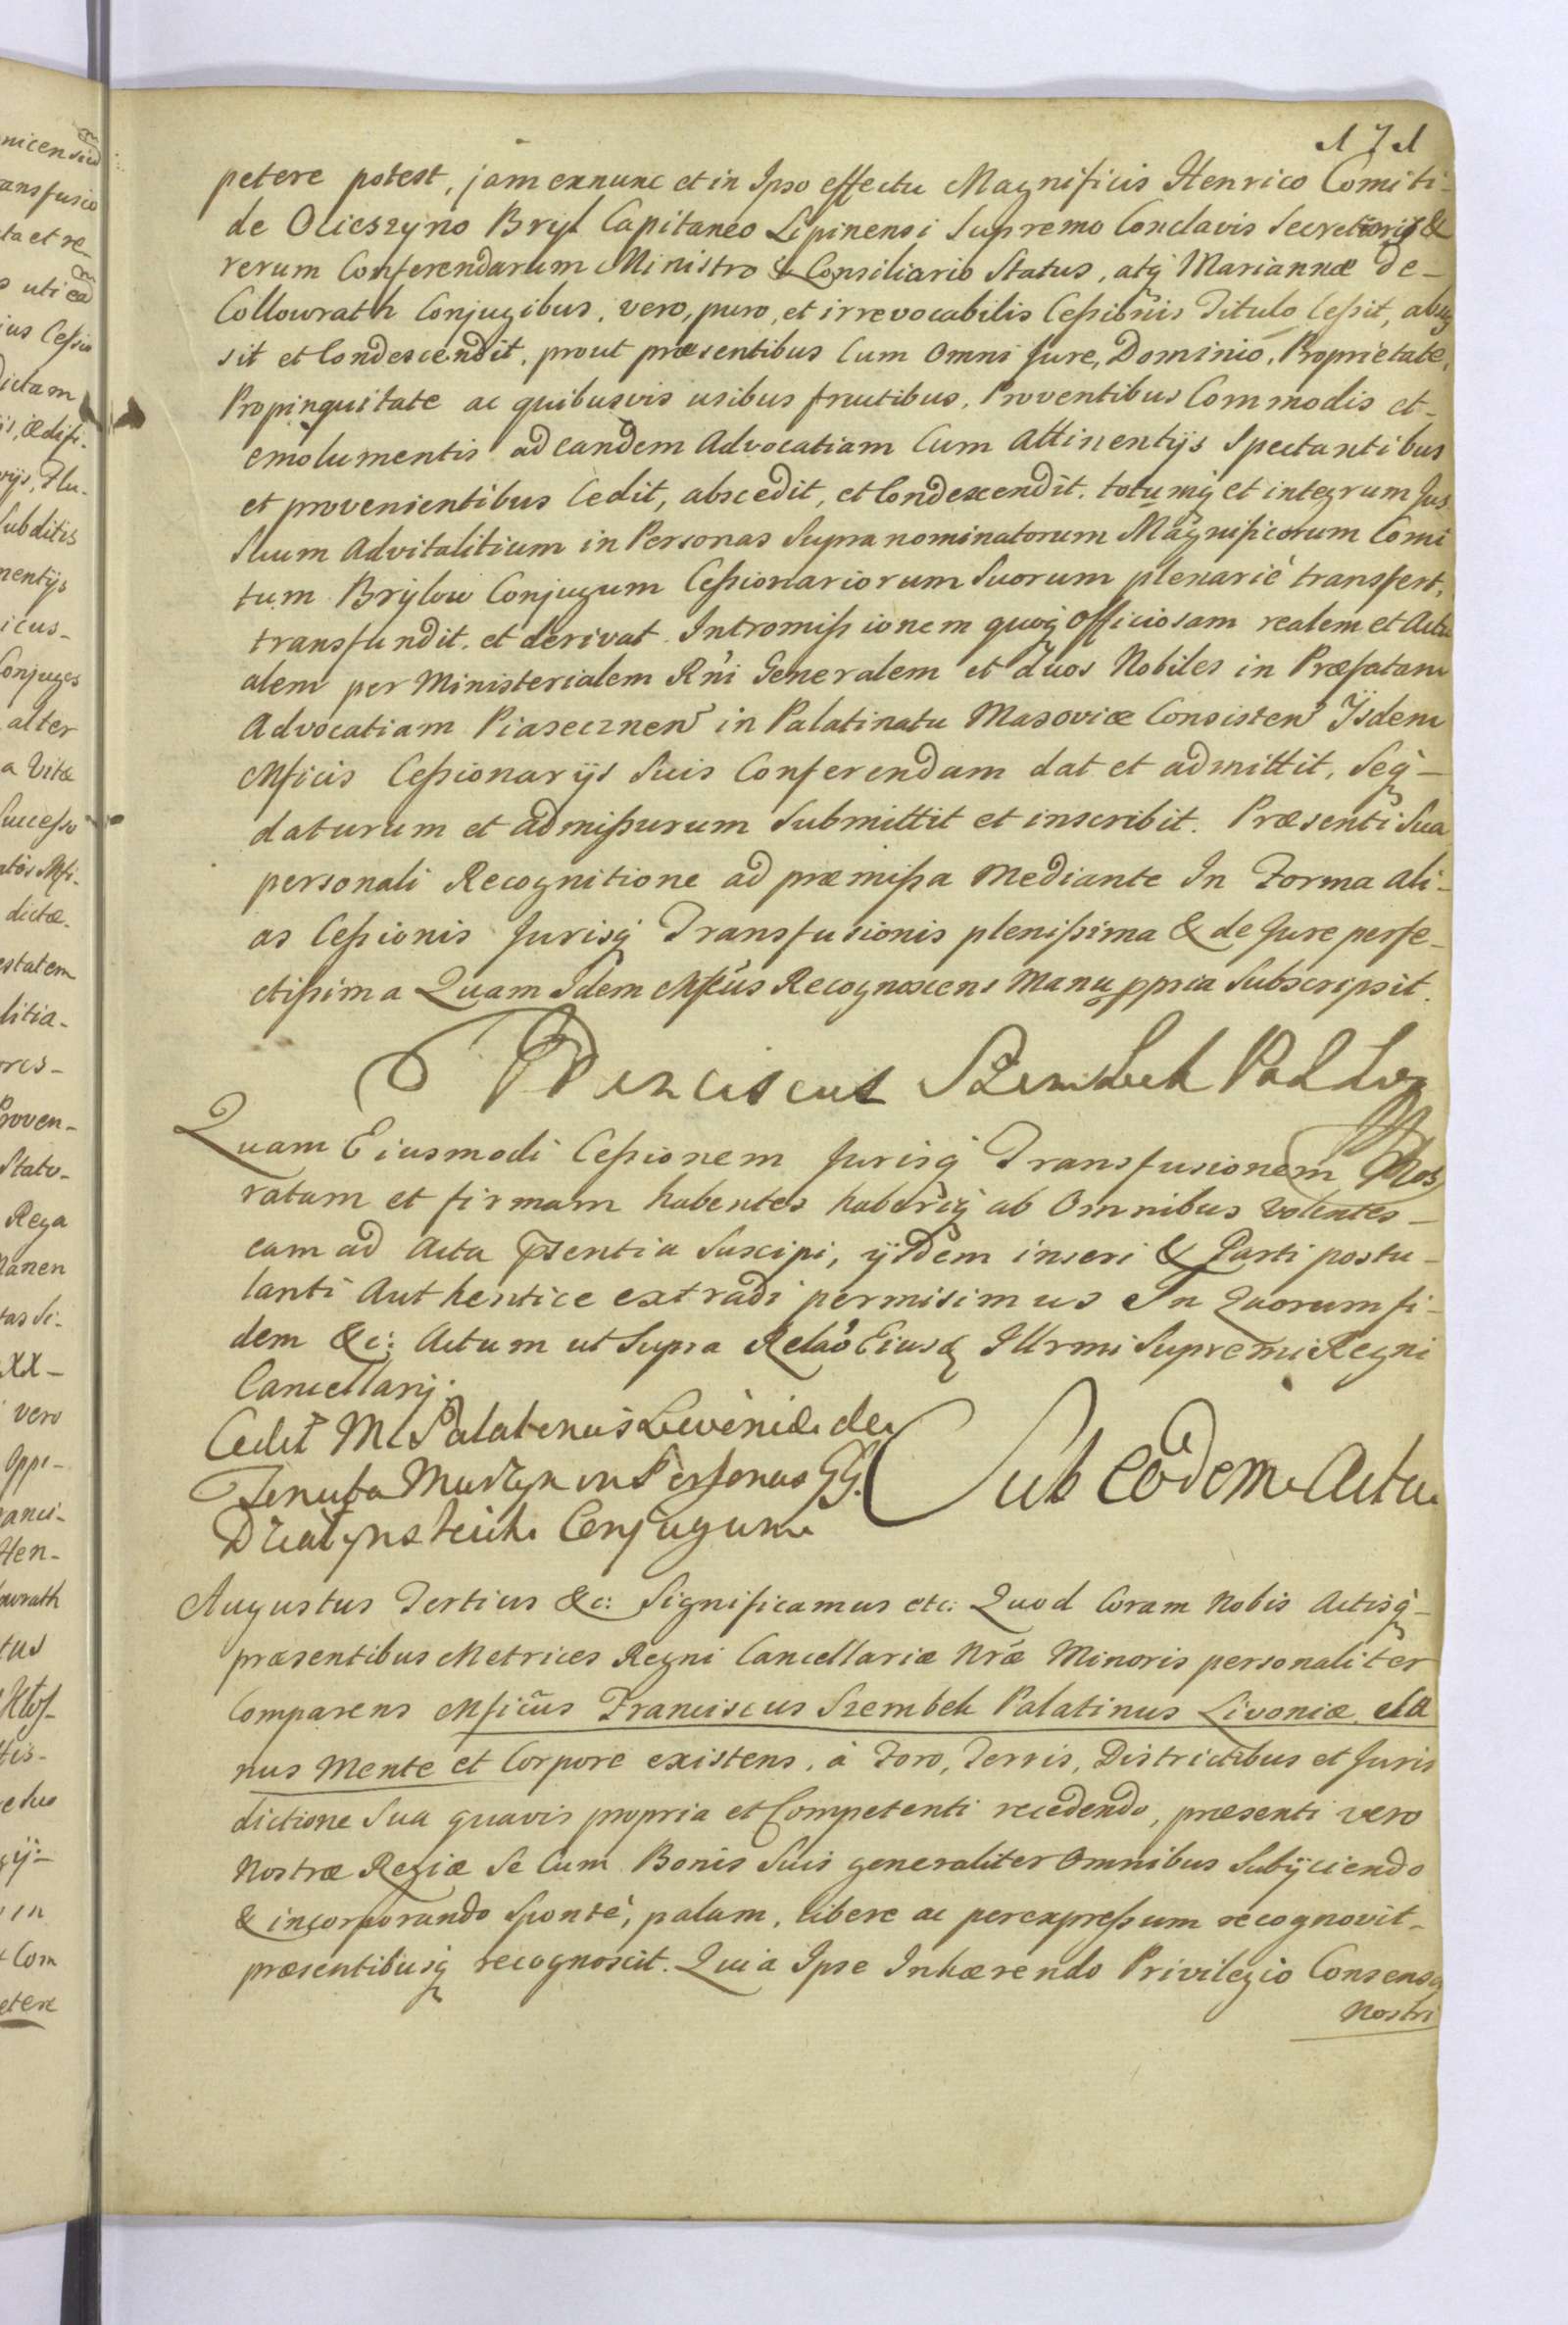 171
petere potest, jam exnunc et in Ipso effectu Magnificis Henrico Comiti-
de Olieszyno Bryl Capitaneo Lipinensi Supremo Conclavis Secretario &
rerum Conferendarum Ministro & Consiliario Status, atq Mariannæ de-
Collowrath Conjugibus, vero, puro, et irrevocabilis Cessionis Titulo Cessit, absces
sit et Condescendit, prout præsentibus Cum Omni Jure, Dominio, Proprietate,
Propinquitate ac quibusvis usibus fructibus, Proventibus Commodis et-
emolumentis ad eandem Advocatiam Cum Attinentijs Spectantibus
et provenientibus Cedit, abscedit, et Condescendit, totumq et integrum Jus
Suum Advitalitium in Personas Supranominatorum Magnificorum Comi
tum Brylow Conjugum Cessionariorum Suorum plenarie transfert,
transfundit, et derivat. Intromissionem quoq Officiosam realem et Actu
alem per Ministerialem Rni Generalem et duos Nobiles in Præfatam
Advocatiam Piaseczneñ in Palatinatu Masoviæ Consisteñ Ijsdem
Mficis Cessionarijs Suis Conferendam dat et admittit, Seq-
daturum et admissurum Submittit et inscribit. Præsenti Sua
personali Recognitione ad præmissa Mediante In Forma ali-
as Cessionis Jurisq Transfusionis plenissima & de Jure perfe-
ctissima Quam Idem Mfcus Recognoscens Manu ppria Subscripsit.
Franciscus Szembek Pal
Quam Eiusmodi Cessionem Jurisq Transfusionem Nos
ratam et firmam habentes haberiq ab Omnibus Volentes-
eam ad Acta psentia Suscipi, ijsdem inseri & Parti postu-
lanti Authentice extradi permisimus In Quorum fi-
dem &c: Actum ut Supra Relao Eiusd Illrmi Supremi Regni
Cancellarij.
Cedit M Palatinus Livoniæ de
Tenuta in Personas GG.
Conjugum
Sub Eodem Actu
Augustus Tertius &c: Significamus etc: Quod Coram Nobis Actisq-
præsentibus Metrices Regni Cancellariæ Nræ Minoris personaliter
Comparens Mficus Franciscus Szembek Palatinus Livoniæ, Sa
nus Mente et Corpore existens, à Foro, Terris, Districtibus et Juris
dictione Sua quavis propria et Competenti recedendo, præsenti vero
Nostræ Regiæ Se Cum Bonis Suis generaliter Omnibus Subijciendo
& incorporando Sponte, palam, libere ac perexpressum recognovit-
præsentibusq recognoscit. Quia Ipse Inhærendo Privilegio Consensq
Nostri